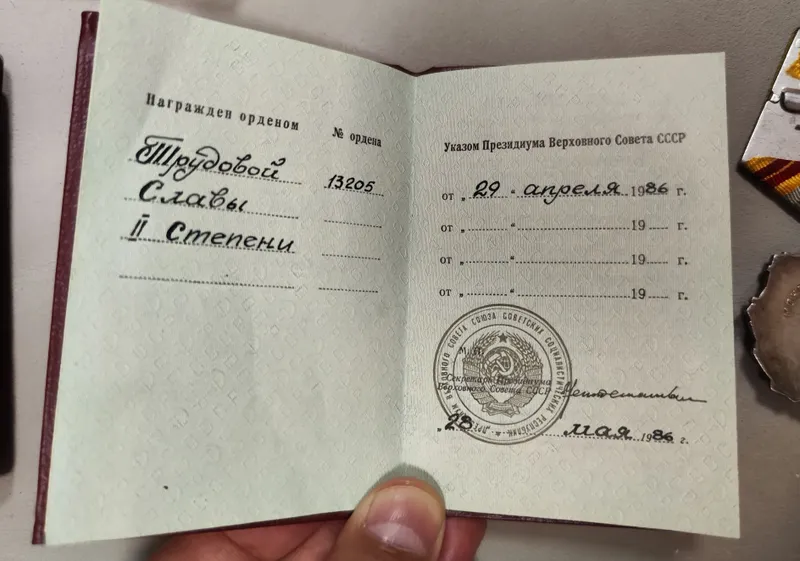 Награжден орденом
№ ордена
Трудовой
13205
Славы
II Степени
Указом Президиума Верховного Совета СССР
от „ 29 “ апреля 1986 г.
от „ “ 19 г.
от „ “ 19 г.
от „ “ 19 г.
М. П.
Секретарь Президиума
Верховного Совета СССР
„ 28 “ мая 1986 г.
ПРЕЗИДИУМ ВЕРХОВНОГО СОВЕТА СОЮЗА СОВЕТСКИХ СОЦИАЛИСТИЧЕСКИХ РЕСПУБЛИК